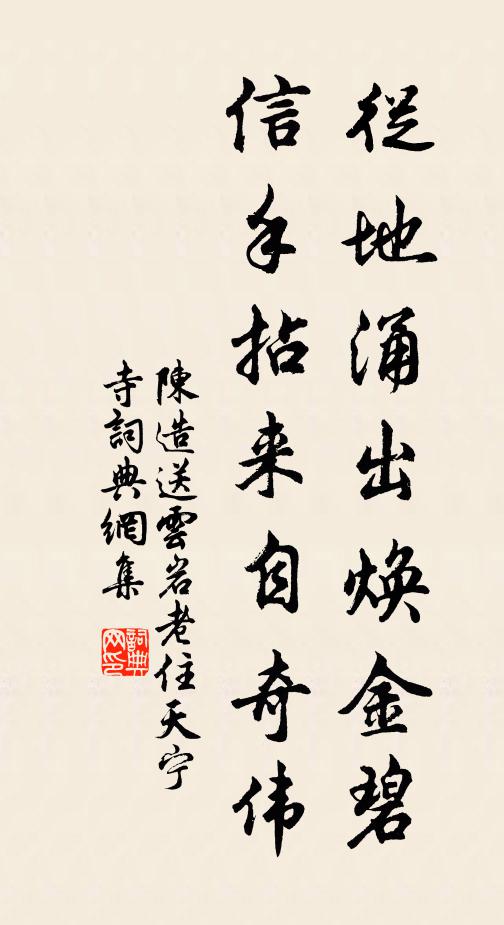 從地涌出焕金碧
信手拈来自奇伟
陳造送雲岩老住天宁
寺詞典網集
詞典网印